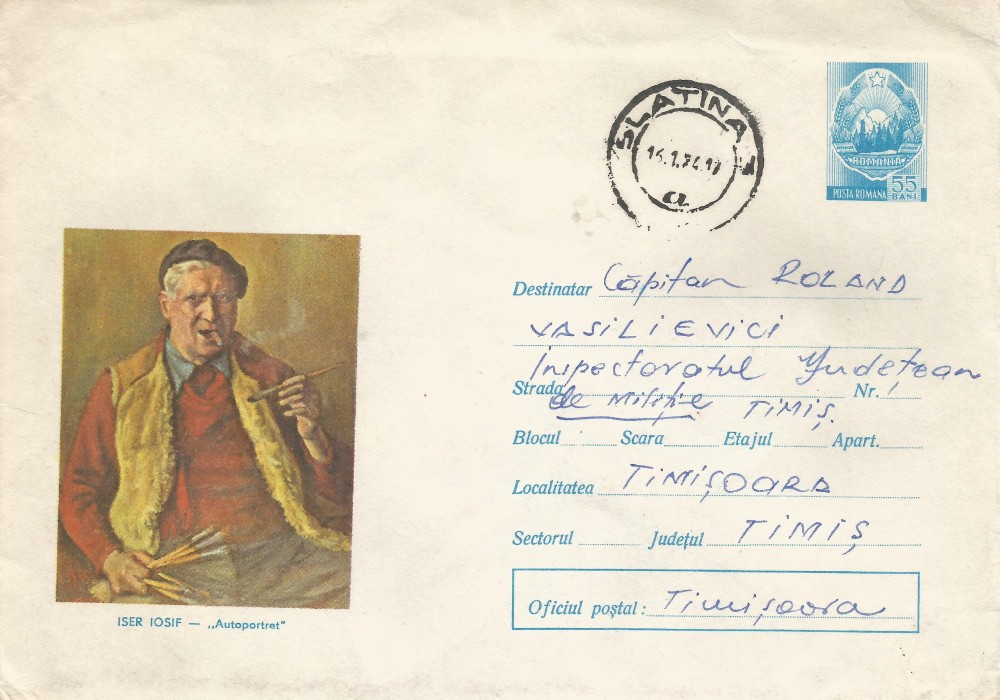 SLATINA
16.1.74.17
a
ROMANIA
POSTA ROMANA 55 BANI
Destinatar Căpitan ROLAND
VASILIEVICI
Inspectoratul Județean
Strada Nr.
de Miliție TIMIȘ.
Blocul Scara Etajul Apart.
Localitatea TIMIȘOARA
Sectorul Județul TIMIȘ
Oficiul poștal: Timișoara
ISER IOSIF — „Autoportret"